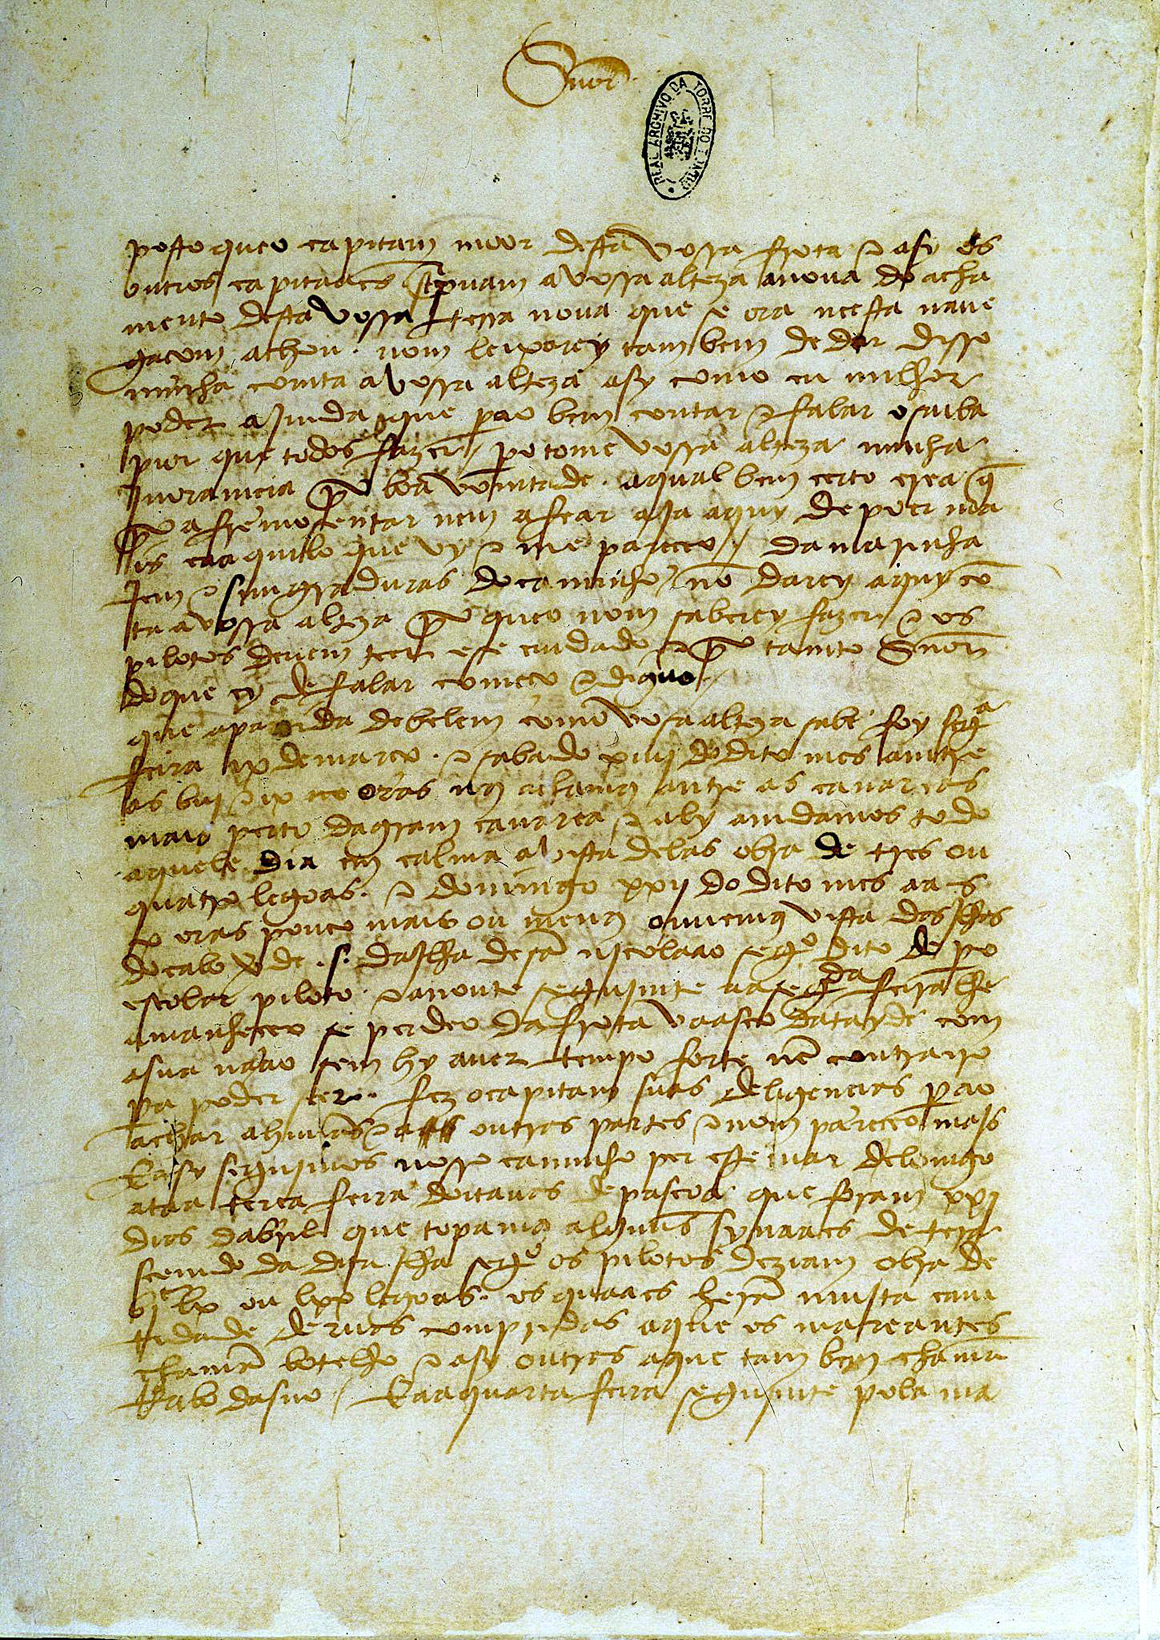 Snor
REAL ARCHIVO DA TORRE DO TOMBO
posto queo capitam moor desta vossa frota e asy os
outros capitaães screpuam a vossa alteza a noua do acha
mento desta vossa terra noua que se ora neesta naue
gaçom achou. nom leixarey tambem de dar disso
minha comta a vossa alteza asy como eu milhor
poder ajmda que pera o bem contar e falar o saiba
pior que todos fazer / pero tome vossa alteza minha
jnoramçia por boa vomtade. aqual bem çerto crea q̃
por afremosentar nem afear aja aquy de poer ma
is caaquilo que vy e me pareçeo / da marinha
jem e simgraduras do caminho / nõ darey aquy cõ
ta a vossa alteza porque o nom saberey fazer / e os
pilotos deuem teer ese cuidado e por tamto Snor
do que ey de falar começo e diguo /
que apartida de belem como vosa alteza sabe foy segª
feira ix de março. e sabado xiiij do dito mes amtre
as biij e ix oras nos achamos antre as canareas
mais perto da gram canarea e aly amdamos todo
aquele dia em calma a vista delas obra de tres ou
quatro legoas. e domingo xxij do dito mes aas
x oras pouco mais ou menos ouuemos vista das jlhas
do cabo verde .s. da jlha de sã njcolaao segº dito de pero
escolar piloto. e a noute segujmte aa segda feira lhe
amanheceo se perdeo da frota vaasco datayde com
a sua naao sem hy auer tempo forte nẽ contrairo
pera poder seer. fez o capitam suas deligençias pera o
achar a hũuas e a outras partes e nom pareçeo majs
E asy segujmos nosso caminho per este mar de lomgo
ataa terça feira doitauas de pascoa que foram xxj
dias dabril que topamos alguũs synaaes de tera
seemdo da dita jlha segº os pilotos deziam obra de
bjc lx ou lxx legoas. os quaaes herã mujta cam
tidade deruas compridas aque os mareantes
chamã botelho e asy outras aque tambem chamã
Rabo dasno / E aaquarta feira segujmte pola ma